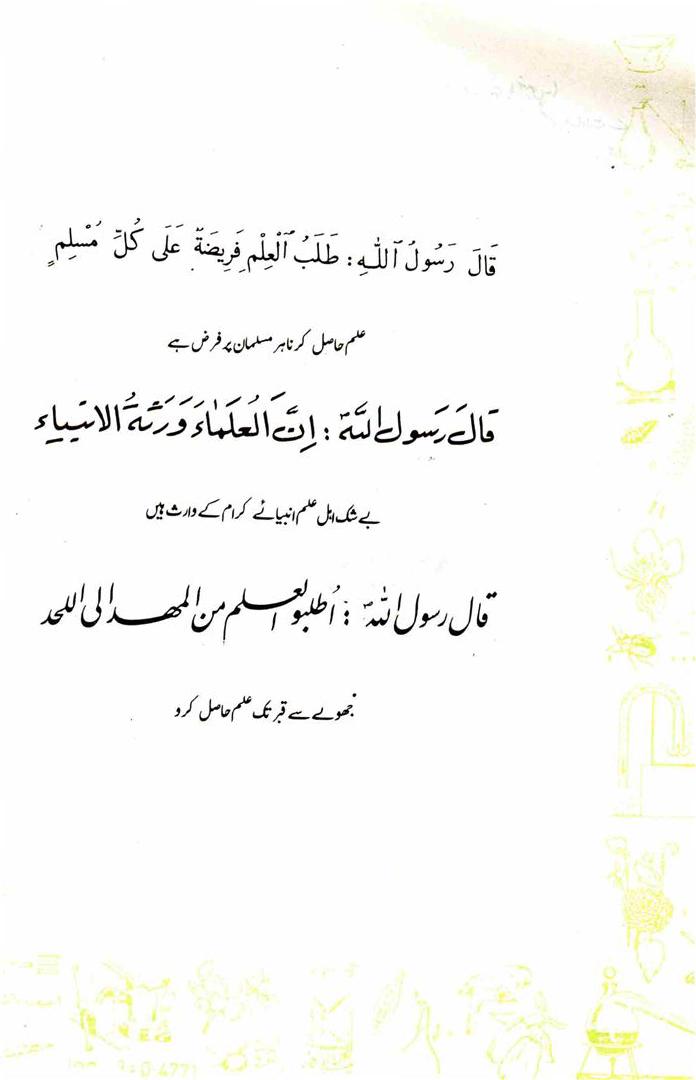 قَالَ رَسُولُ ٱللّٰهِ : طَلَبُ ٱلْعِلْمِ فَرِيضَةٌ عَلَى كُلِّ مُسْلِمٍ
علم حاصل کرنا ہر مسلمان پر فرض ہے
قَالَ رَسول اللهؐ : إنَّ الْعُلَمَاءَ وَرَثَةُ الانبياء
بے شک اہل علم انبیائے کرام کے وارث ہیں
قال رسول اللهؐ : اُطلبو العلم من المهد الى اللحد
جھولے سے قبر تک علم حاصل کرو